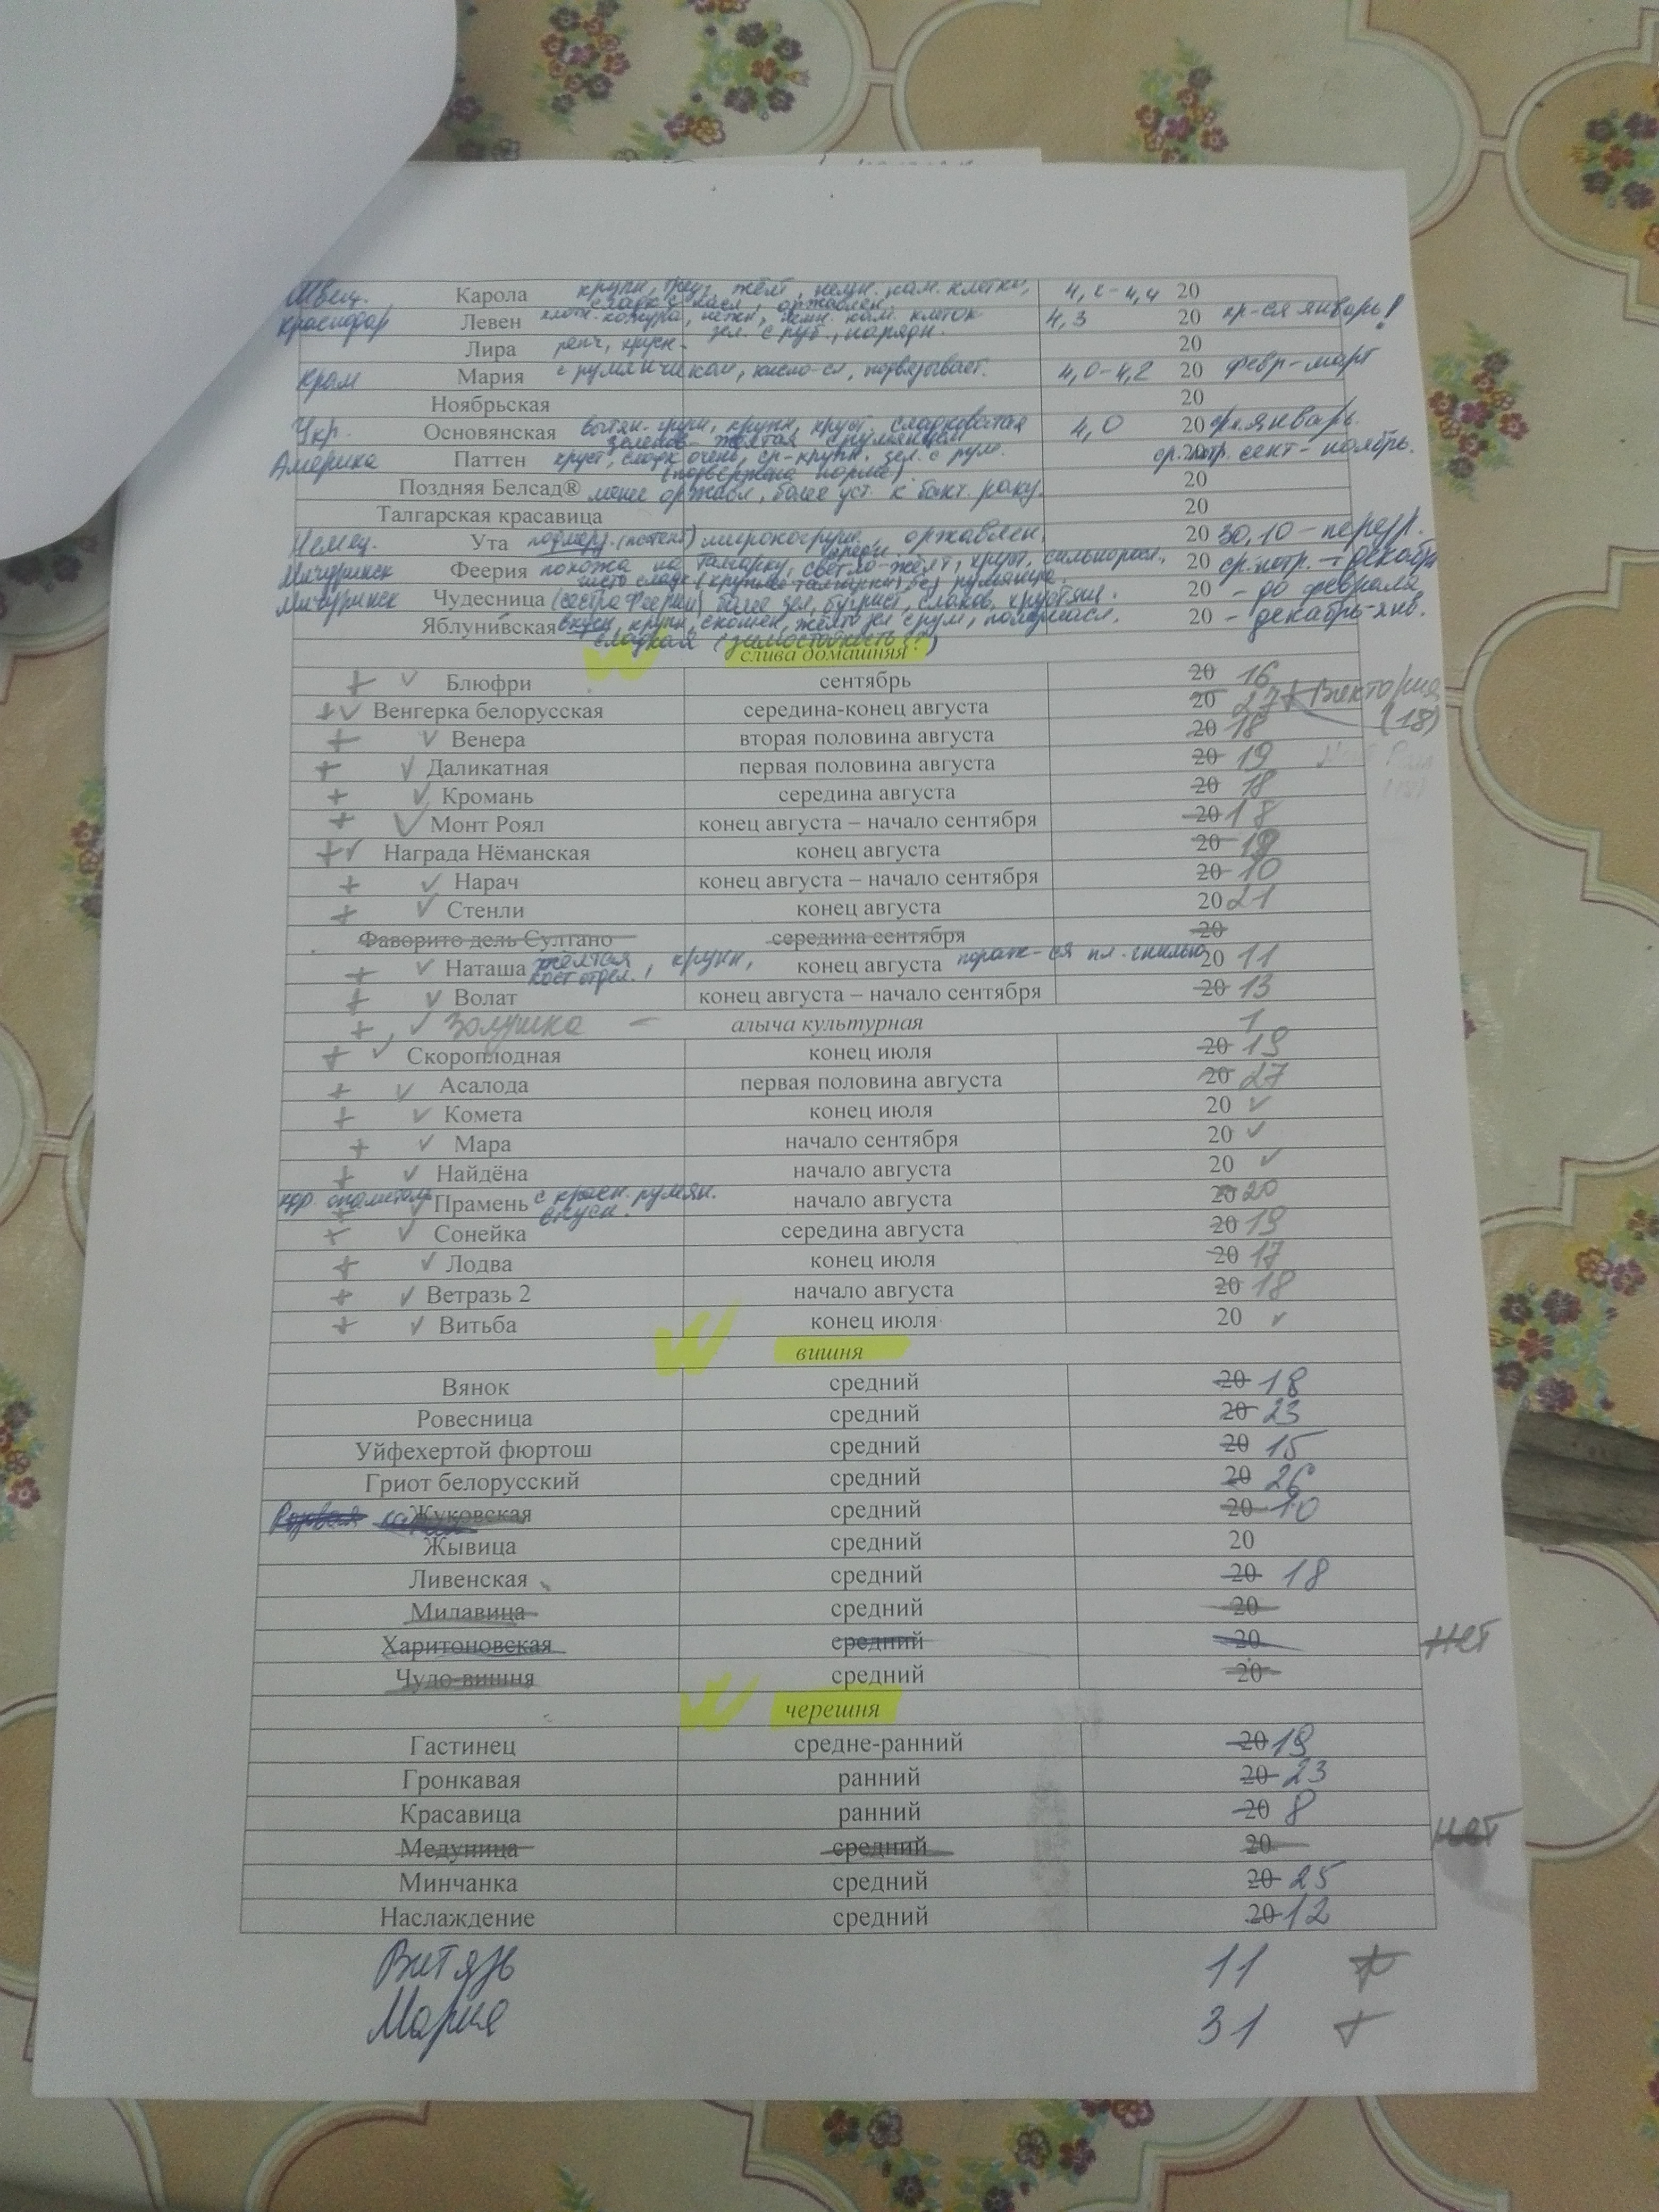 Швец. Карола крупн, груш, желт, нежн. кам. клетки, 4,2-4,4 20
сладк с кисл, оржавлен.
Краснодар Левен плотн. кожура, нежн, кам. клеток 4,3 20 хр-ся январь!
зел. с рум, нарядн.
Лира хрустн. 20
Крым Мария с румянчиком, кисло-сл, подвязывает. 4,0-4,2 20 февр-март
Ноябрьская 20
Укр. Основянская крупн, хруст. сладковатая 4,0 20 январь.
зеленов-желтая с румянцем
Америка Паттен хруст, сладк очень, ср-крупн, зел. с рум. 20 сент-ноябрь.
(подвержена парше).
Поздняя Белсад® менее оржавл, более уст. к бакт. раку. 20
Талгарская красавица 20
Немец. Ута широкогруш., оржавлен. 20 30,10 –
Мичуринск Феерия похожа на Талгарку, светло-желт, хруст, 20 ср. потр. – декабрь
чисто сладк (крупнее талгарки), без румянца.
Мичуринск Чудесница (сестра Феерии) более зел, бугрист, сладк, хрустящ. 20 – до февраля
Яблунивская вкусн, крупн, скошен, желто зел с рум, 20 – декабрь-янв.
сладкая (зимостойкость?)
слива домашняя
+ ✓ Блюфри сентябрь 20 16
+ ✓ Венгерка белорусская середина-конец августа 20 27 + Виктория
(18)
+ ✓ Венера вторая половина августа 20 18
+ ✓ Даликатная первая половина августа 20 19
+ ✓ Кромань середина августа 20 18
+ ✓ Монт Роял конец августа – начало сентября 20 18
+ ✓ Награда Нёманская конец августа 20 19
+ ✓ Нарач конец августа – начало сентября 20 10
+ ✓ Стенли конец августа 20 21
Фаворито дель Султано середина сентября 20
+ ✓ Наташа желтая, крупн, конец августа пораж-ся пл. гнилью 20 11
кост отдел.
+ ✓ Волат конец августа – начало сентября 20 13
+ ✓ Золушка – алыча культурная 1
+ ✓ Скороплодная конец июля 20 19
+ ✓ Асалода первая половина августа 20 27
+ ✓ Комета конец июля 20 ✓
+ ✓ Мара начало сентября 20 ✓
+ ✓ Найдёна начало августа 20 ✓
хор. опылитель Прамень с красн. румян. начало августа 20 20
вкусн.
+ ✓ Сонейка середина августа 20 19
+ ✓ Лодва конец июля 20 17
+ ✓ Ветразь 2 начало августа 20 18
+ ✓ Витьба конец июля 20 ✓
вишня
Вянок средний 20 18
Ровесница средний 20 23
Уйфехертой фюртош средний 20 15
Гриот белорусский средний 20 26
Жуковская средний 20 10
Жывица средний 20
Ливенская средний 20 18
Милавица средний 20
Харитоновская средний 20 нет
Чудо-вишня средний 20
черешня
Гастинец средне-ранний 20 19
Гронкавая ранний 20 23
Красавица ранний 20 8
Медуница средний 20 нет
Минчанка средний 20 25
Наслаждение средний 20 12
Витязь 11 +
Мария 31 +